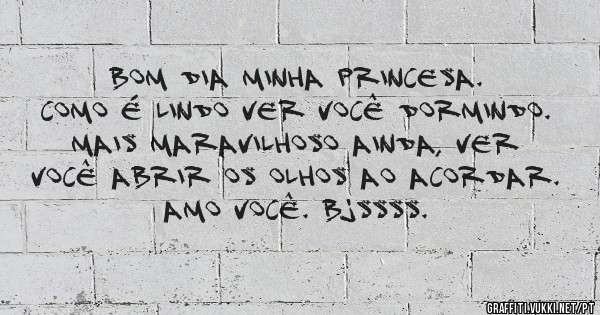 BOM DIA MINHA PRINCESA.
COMO É LINDO VER VOCÊ DORMINDO.
MAIS MARAVILHOSO AINDA, VER
VOCÊ ABRIR OS OLHOS AO ACORDAR.
AMO VOCÊ. Bjssss.
GRAFFITI.VUKKI.NET/PT